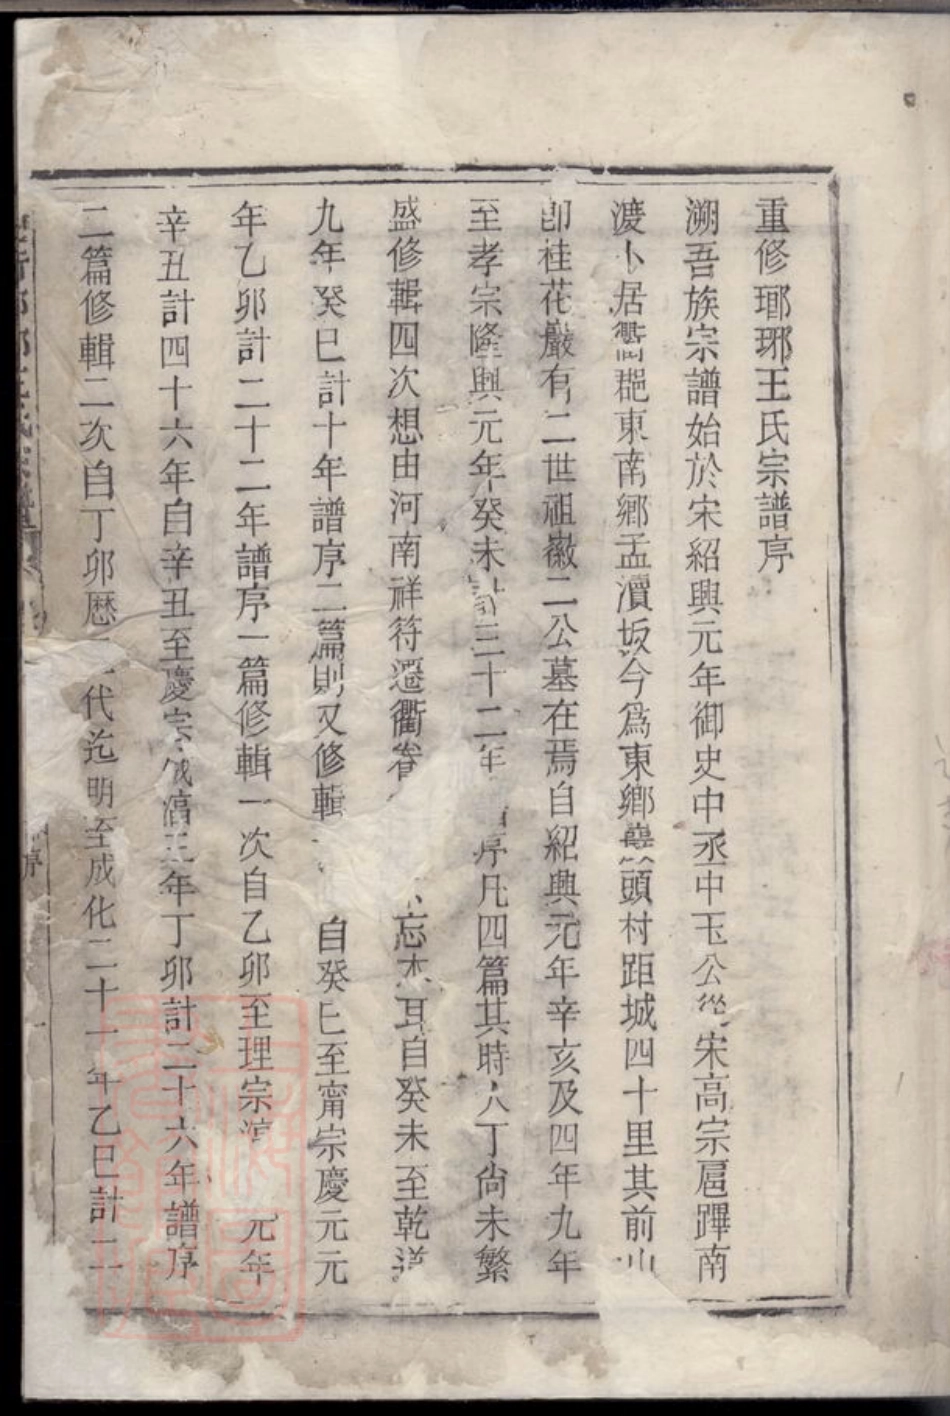 重修瑯琊王氏宗譜序
溯吾族宗譜始於宋紹興元年御史中丞中玉公從宋高宗扈蹕南
渡卜居衢郡東南鄉孟瀆坂今為東鄉頭村距城四十里其前山
卽桂花巖有二世祖徽二公墓在焉自紹興元年辛亥及四年九年
至孝宗隆興元年癸未計三十二年序凡四篇其時人丁尚未繁
盛修輯四次想由河南祥符遷衢眷忘本耳自癸未至乾道
九年癸巳計十年譜序二篇則又修輯自癸巳至甯宗慶元元
年乙卯計二十二年譜序一篇修輯一次自乙卯至理宗淳元年
辛丑計四十六年自辛丑至慶宗咸淳三年丁卯計二十六年譜序
二篇修輯二次自丁卯歷代迄明至成化二十一年乙巳計二
序